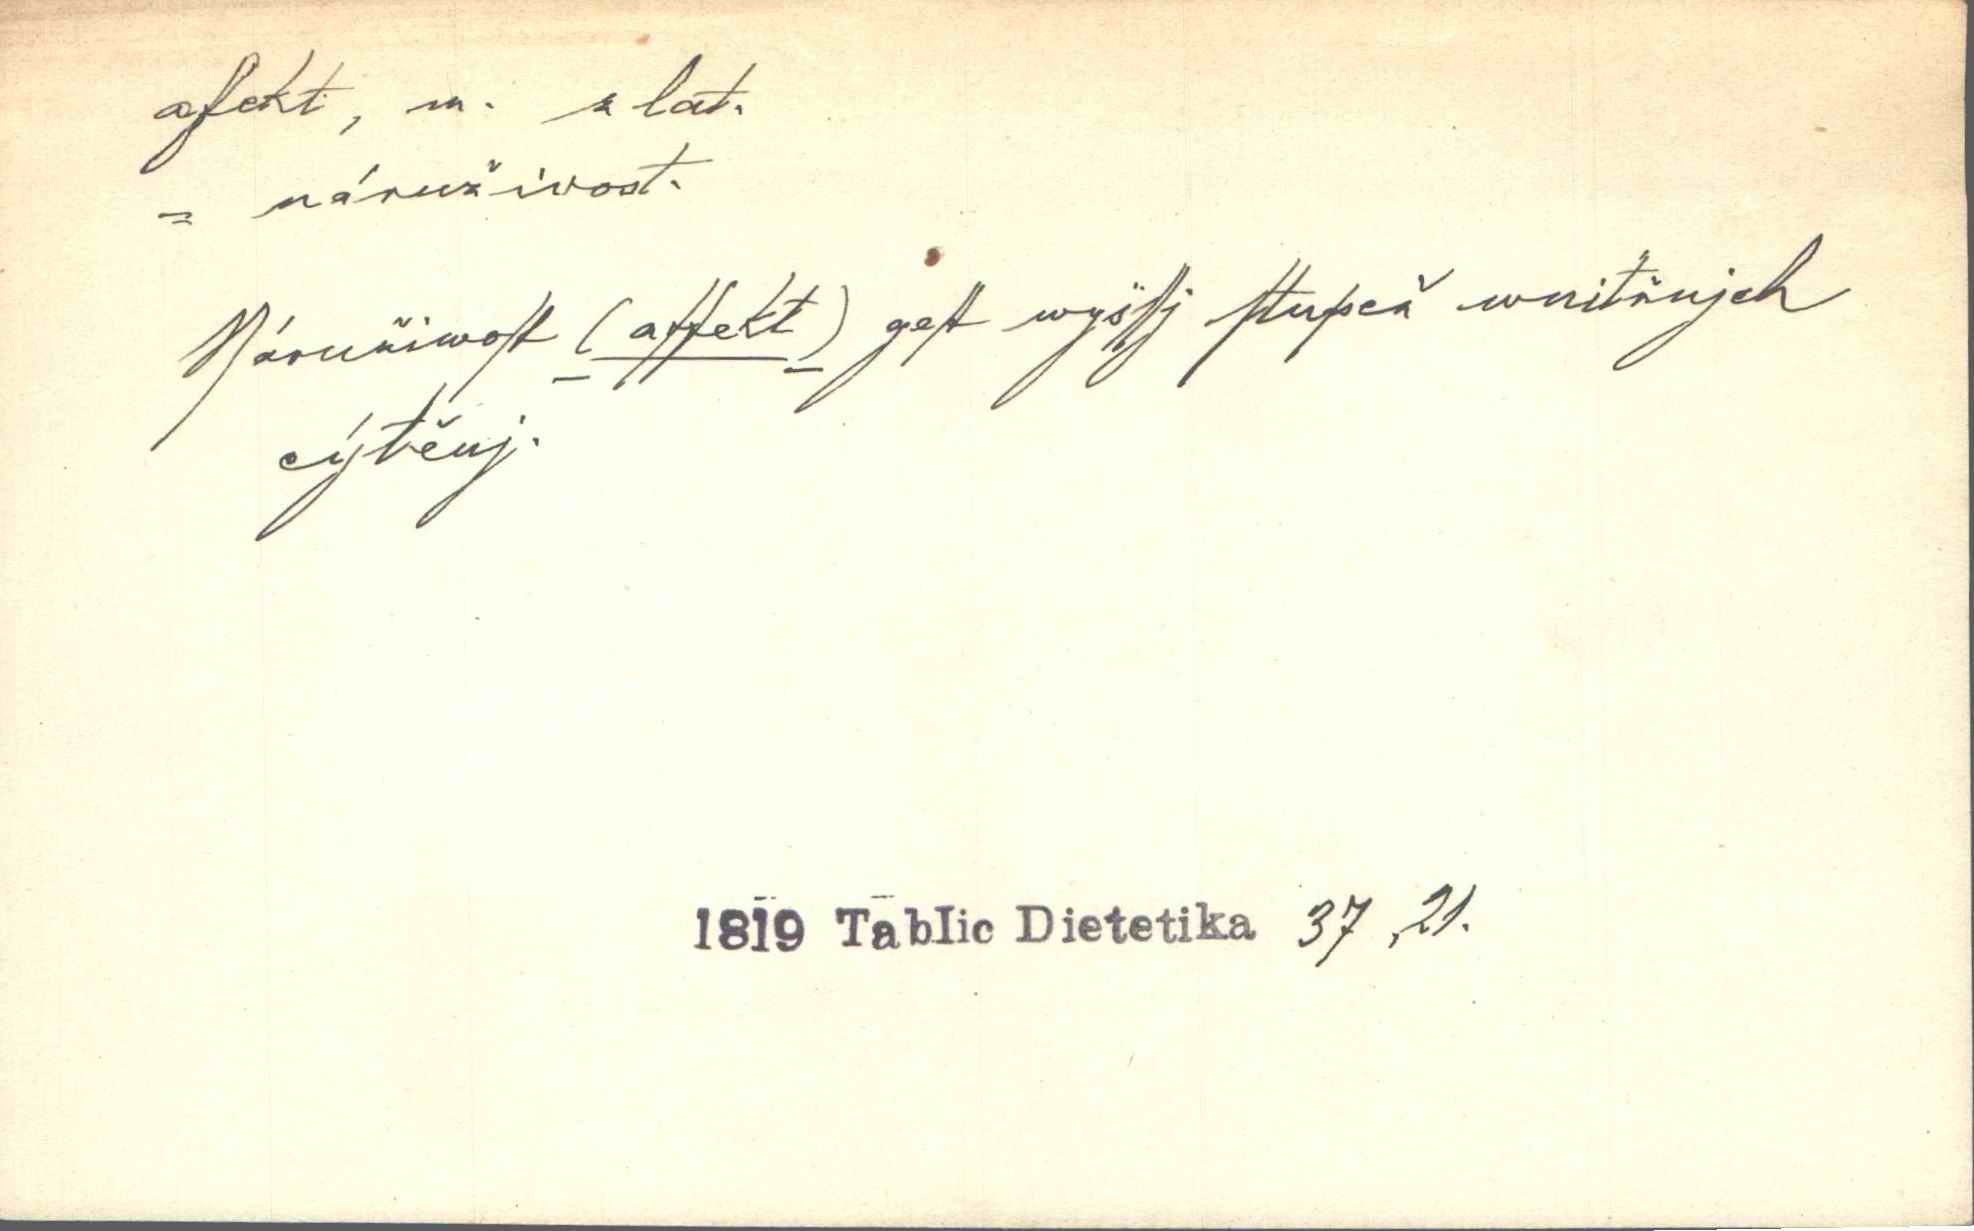 afekt, m. z lat.
= náruživost.
Náružiwoſt (affekt) geſt wyšſj ſtupeň wnitřnjch
cýtěnj.
1819 Tablic Dietetika 37,21.